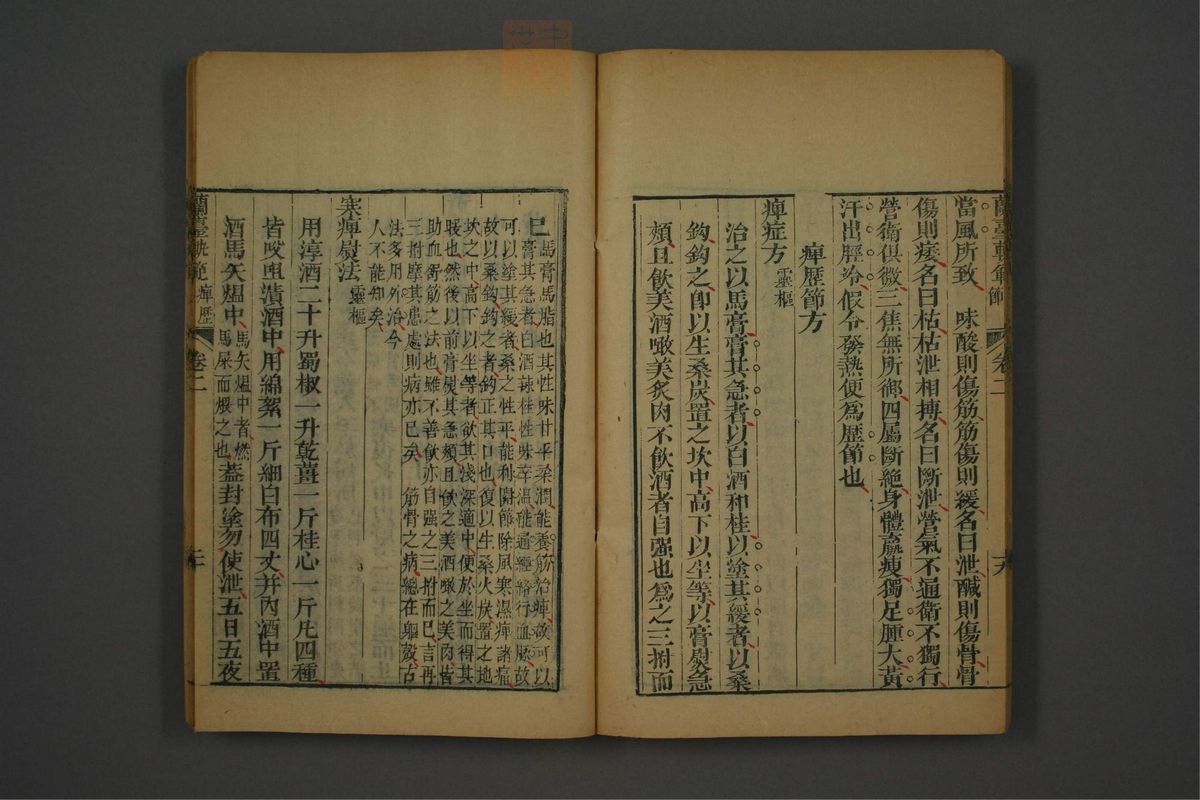 蘭臺軌範 節 卷二 十九
當風所致 味酸則傷筋筋傷則緩名曰泄醎則傷骨骨
傷則痿名曰枯枯泄相搏名曰斷泄營氣不通衛不獨行
營衛俱微三焦無所御四屬斷絶身體羸瘦獨足腫大黃
汗出脛冷假令發熱便爲歷節也
痺歷節方
痺症方 靈樞
治之以馬膏膏其急者以白酒和桂以塗其緩者以桑
鈎鈎之即以生桑炭置之坎中高下以坐等以膏熨急
頰且飲美酒噉美炙肉不飲酒者自强也爲之三拊而
已
馬膏馬脂也其性味甘平柔潤能養筋治痺故可以
膏其急者白酒辣桂性味辛溫能通經絡行血脈故
可以塗其緩者桑之性平能利關節除風寒濕痺諸痛
故以桑鈎鈎之者鈎正其口也復以生桑火炭置之地
坎之中高下以坐等者欲其淺深適中便於坐而得其
暖也然後以前膏熨其急頰且飲之美酒噉之美肉皆
助血舒筋之法也雖不善飲亦自强之三拊而已言再
三拊摩其患處則病亦已矣 筋骨之病總在軀殼古
法多用外治今
人不能知矣
寒痺熨法 靈樞
用淳酒二十升蜀椒一升乾薑一斤桂心一斤凡四種
皆㕮咀漬酒中用綿絮一斤細白布四丈并內酒中置
酒馬矢熅中 馬矢熅中者燃
馬屎而煨之也 蓋封塗勿使泄五日五夜
蘭臺軌範 痺歷 卷二 二十